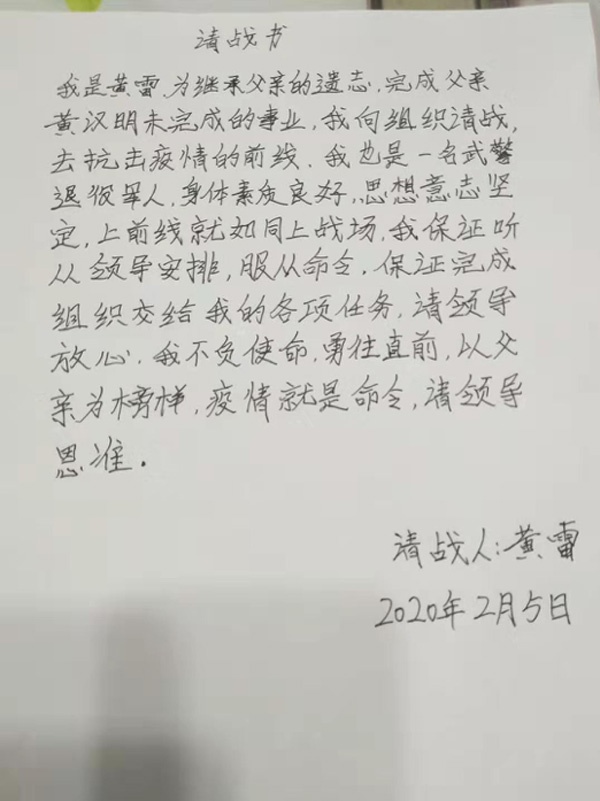 请战书
我是黄雷，为继承父亲的遗志，完成父亲
黄汉明未完成的事业，我向组织请战，
去抗击疫情的前线．我也是一名武警
退役军人，身体素质良好，思想意志坚
定，上前线就如同上战场，我保证听
从领导安排，服从命令．保证完成
组织交给我的各项任务，请领导
放心．我不负使命，勇往直前，以父
亲为榜样，疫情就是命令，请领导
恩准．
请战人：黄雷
2020年2月5日